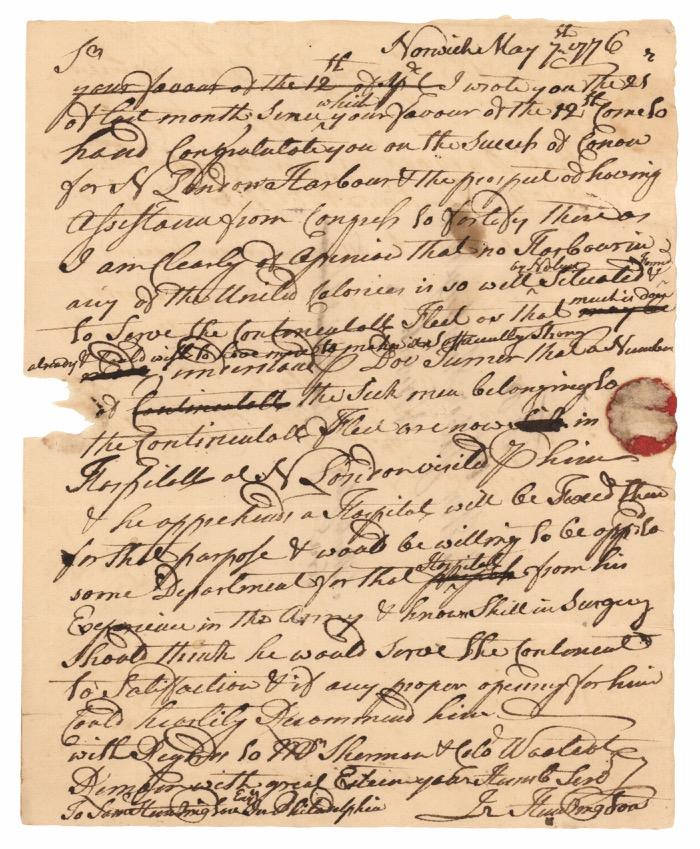 Sr Norwich May 7st 1776
your favour of the 12st of Apl I wrote you the 21
of last month Since which your favour of the 12st Come to
hand Congratulate you on the Success of
for N London Harbour & the prospect of having
Assistance from Congress to fortify there as
I am Clearly of Opinion that no Harbour in
any of the United Colonies is so well Situated by Nature &
to Serve the Continentall Fleet as that much is done
already & to make it Effectually Strong
understand Doc Turner that a Number
of Continentall the Sick men belonging to
the Continentall Fleet are now in
Hospitall at N London visited him
& he apprehends a Hospital will be fixed there
for that purpose & would be willing to be app to
some Department for that Hospital from his
Experience in the Army & known Skill in Surgery
Should think he would Serve the Continent
to Satisfaction & if any proper opening for him
Could heartily Recommend him
with Regards to Mr Sherman & Colo Wolcott
Remain with great Esteem your Humb Serv
To Saml Huntington Esqr In Philadelphia Jz Huntington